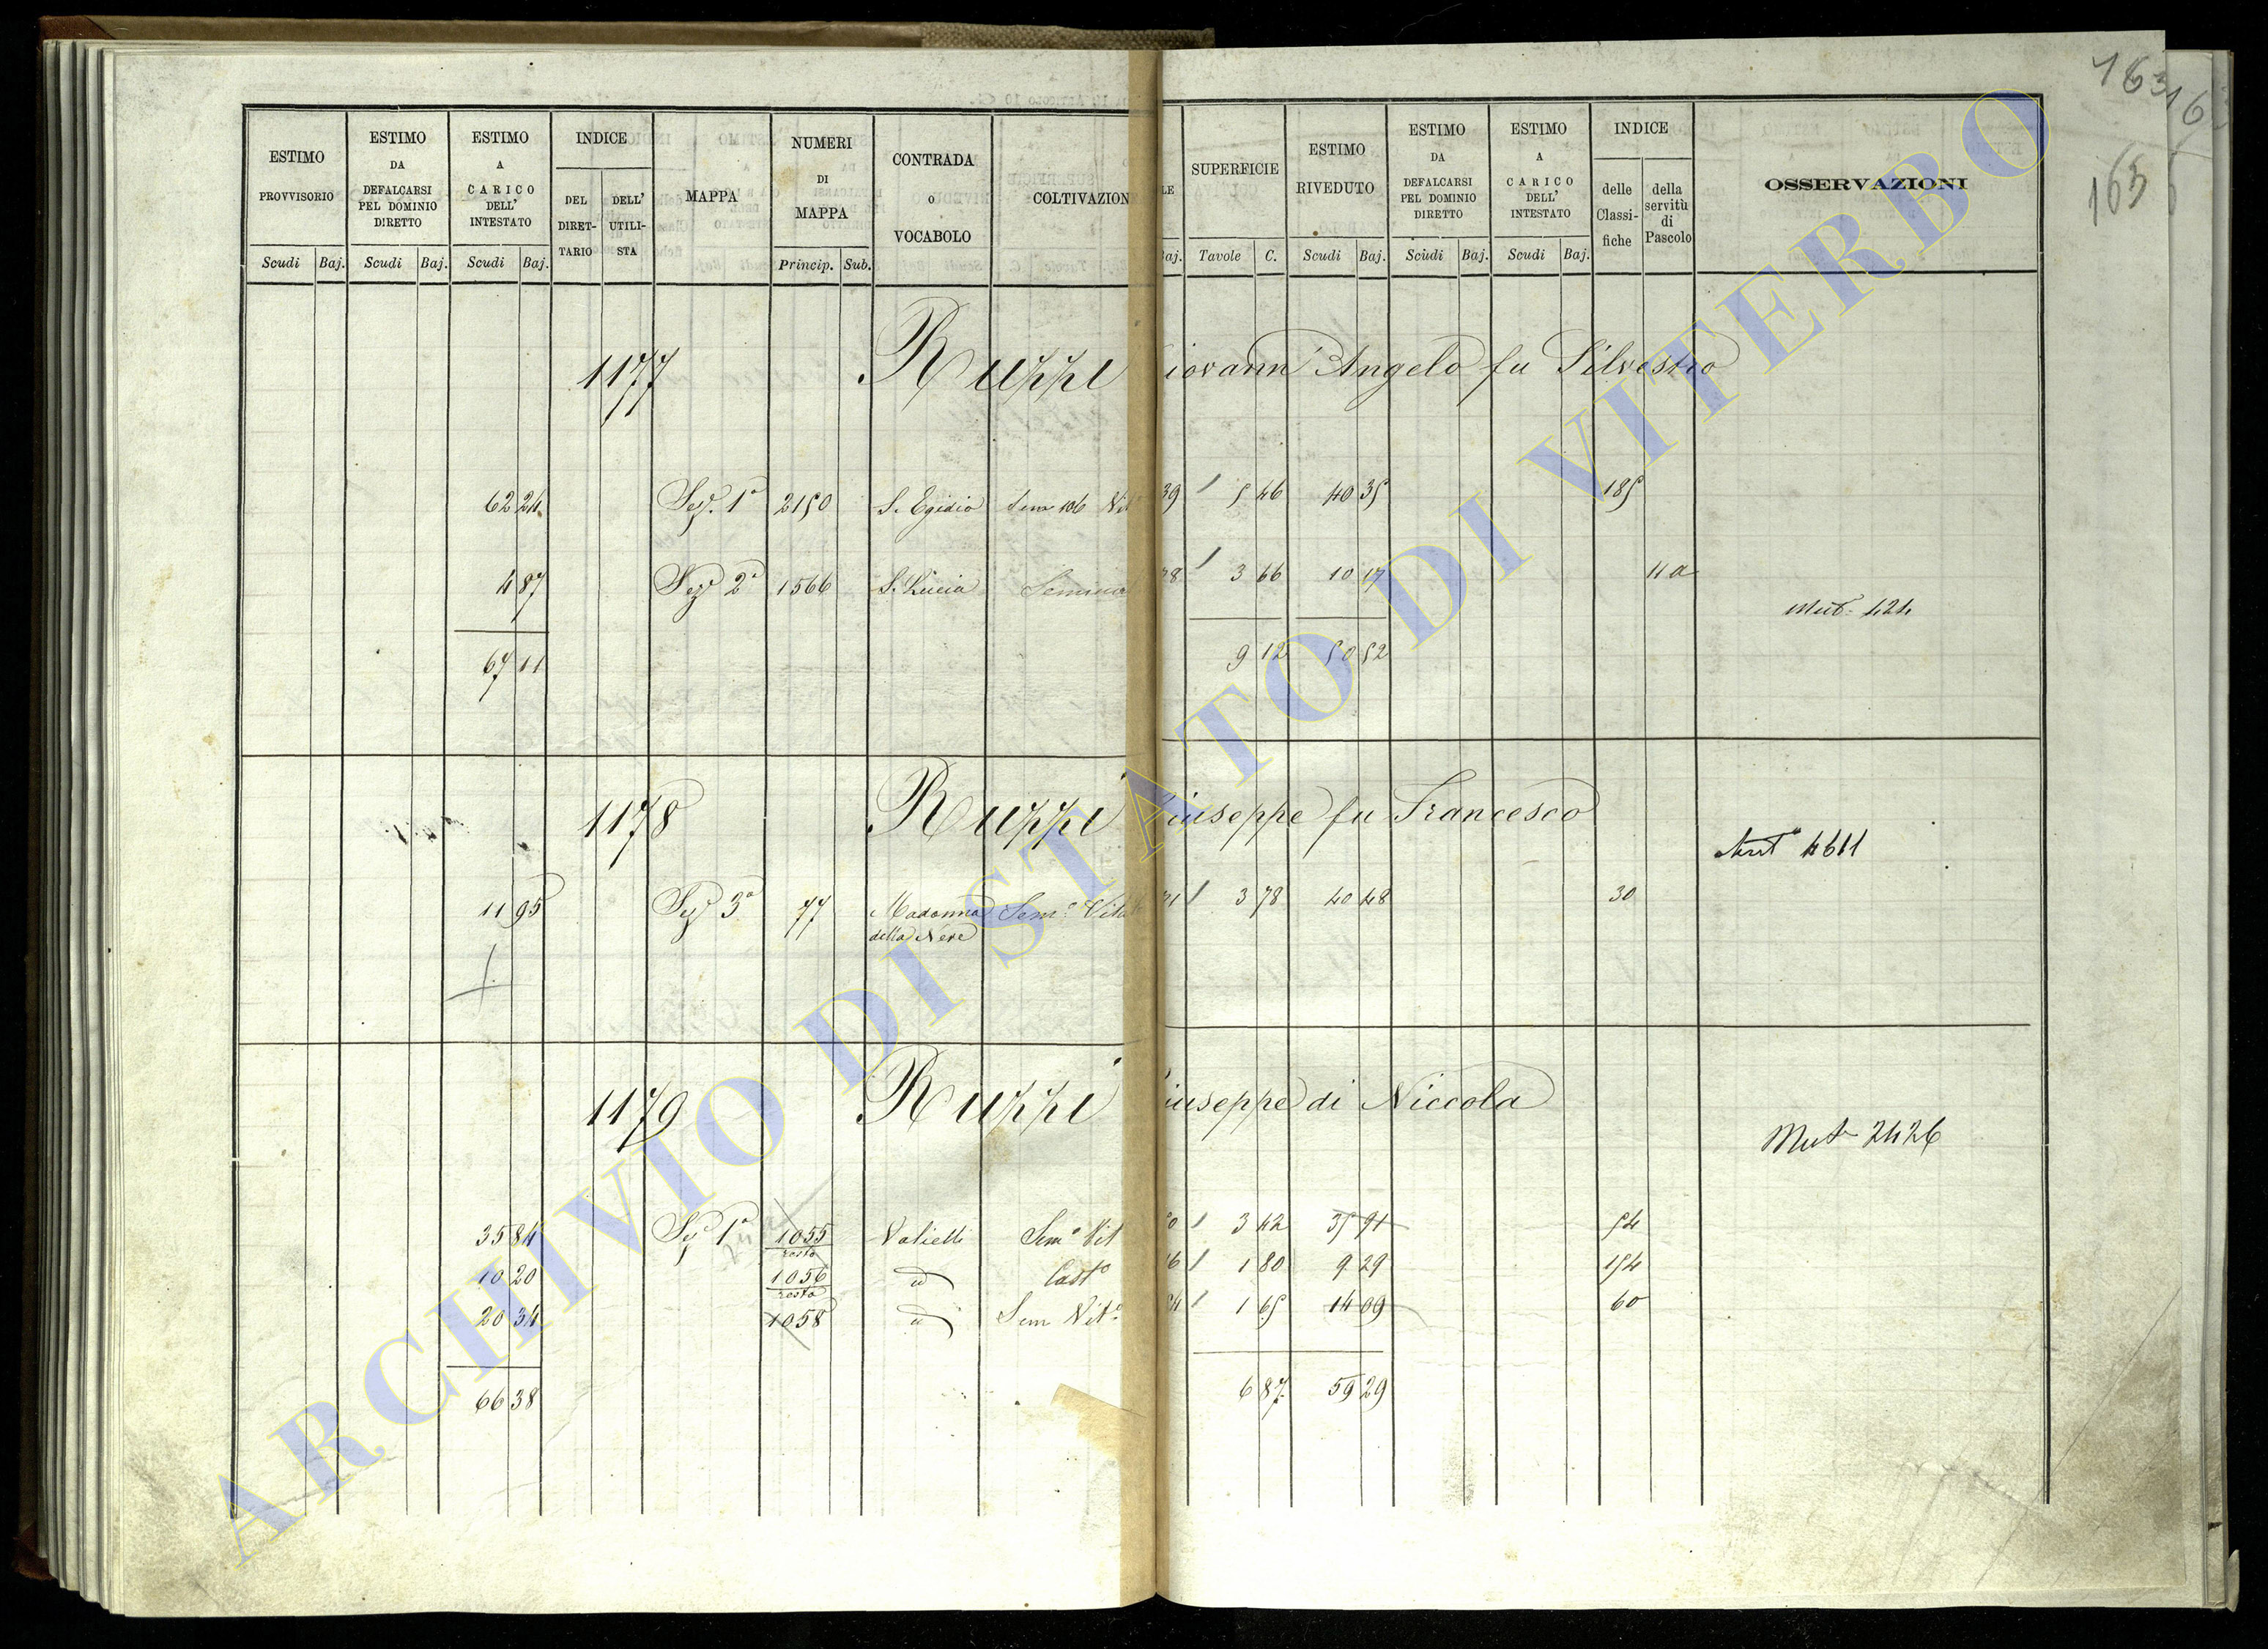 163
16
165
ESTIMO PROVVISORIO
Scudi Baj.
ESTIMO DA DEFALCARSI PEL DOMINIO DIRETTO
Scudi Baj.
ESTIMO A CARICO DELL' INTESTATO
Scudi Baj.
INDICE
DEL DIRETTARIO
DELL' UTILISTA
MAPPA
NUMERI DI MAPPA
Princip. Sub.
CONTRADA o VOCABOLO
COLTIVAZION
LE
aj.
SUPERFICIE
Tavole C.
ESTIMO RIVEDUTO
Scudi Baj.
ESTIMO DA DEFALCARSI PEL DOMINIO DIRETTO
Scudi Baj.
ESTIMO A CARICO DELL' INTESTATO
Scudi Baj.
INDICE
delle Classifiche
della servitù di Pascolo
OSSERVAZIONI
1177 Ruzzi iovann Angelo fu Silvestro
62 24 Sez. 1a 2150 S. Egidio Sem 106 Vit 39 5 46 40 35 185
4 87 Sez 2a 1566 S. Lucia Semina 78 3 66 10 17 11 a
Mut. 424
67 11 9 12 50 52
1178 Ruzzi iuseppe fu Francesco
Mut 4611
11 95 Sez 3a 77 Madonna della Neve Sem.o Vitato 71 3 78 40 48 30
1179 Ruzzi iuseppe di Niccola
Mut 2426
35 84 Sez 1a 1055 Valielli Sem.o Vit 50 3 42 35 91 54
resto
10 20 1056 id Cast.o 6 1 80 9 29 154
resto
20 34 1058 id Sem Vit.o 54 1 65 14 09 60
66 38 6 87 59 29
ARCHIVIO DI STATO DI VITERBO